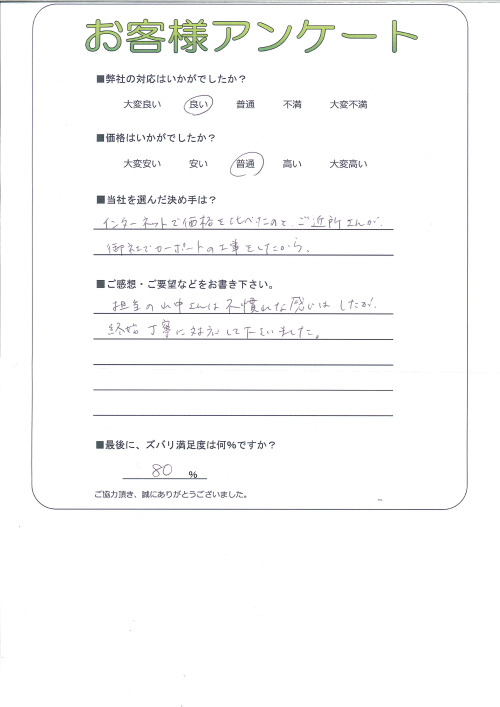 お客様アンケート
■弊社の対応はいかがでしたか？
大変良い 良い 普通 不満 大変不満
■価格はいかがでしたか？
大変安い 安い 普通 高い 大変高い
■当社を選んだ決め手は？
インターネットで価格を比べたのと、ご近所さんが、
御社でカーポートの工事をしたから。
■ご感想・ご要望などをお書き下さい。
担当の山中さんは不慣れな感じはしたが、
終始丁寧に対応して下さいました。
■最後に、ズバリ満足度は何％ですか？
80 ％
ご協力頂き、誠にありがとうございました。